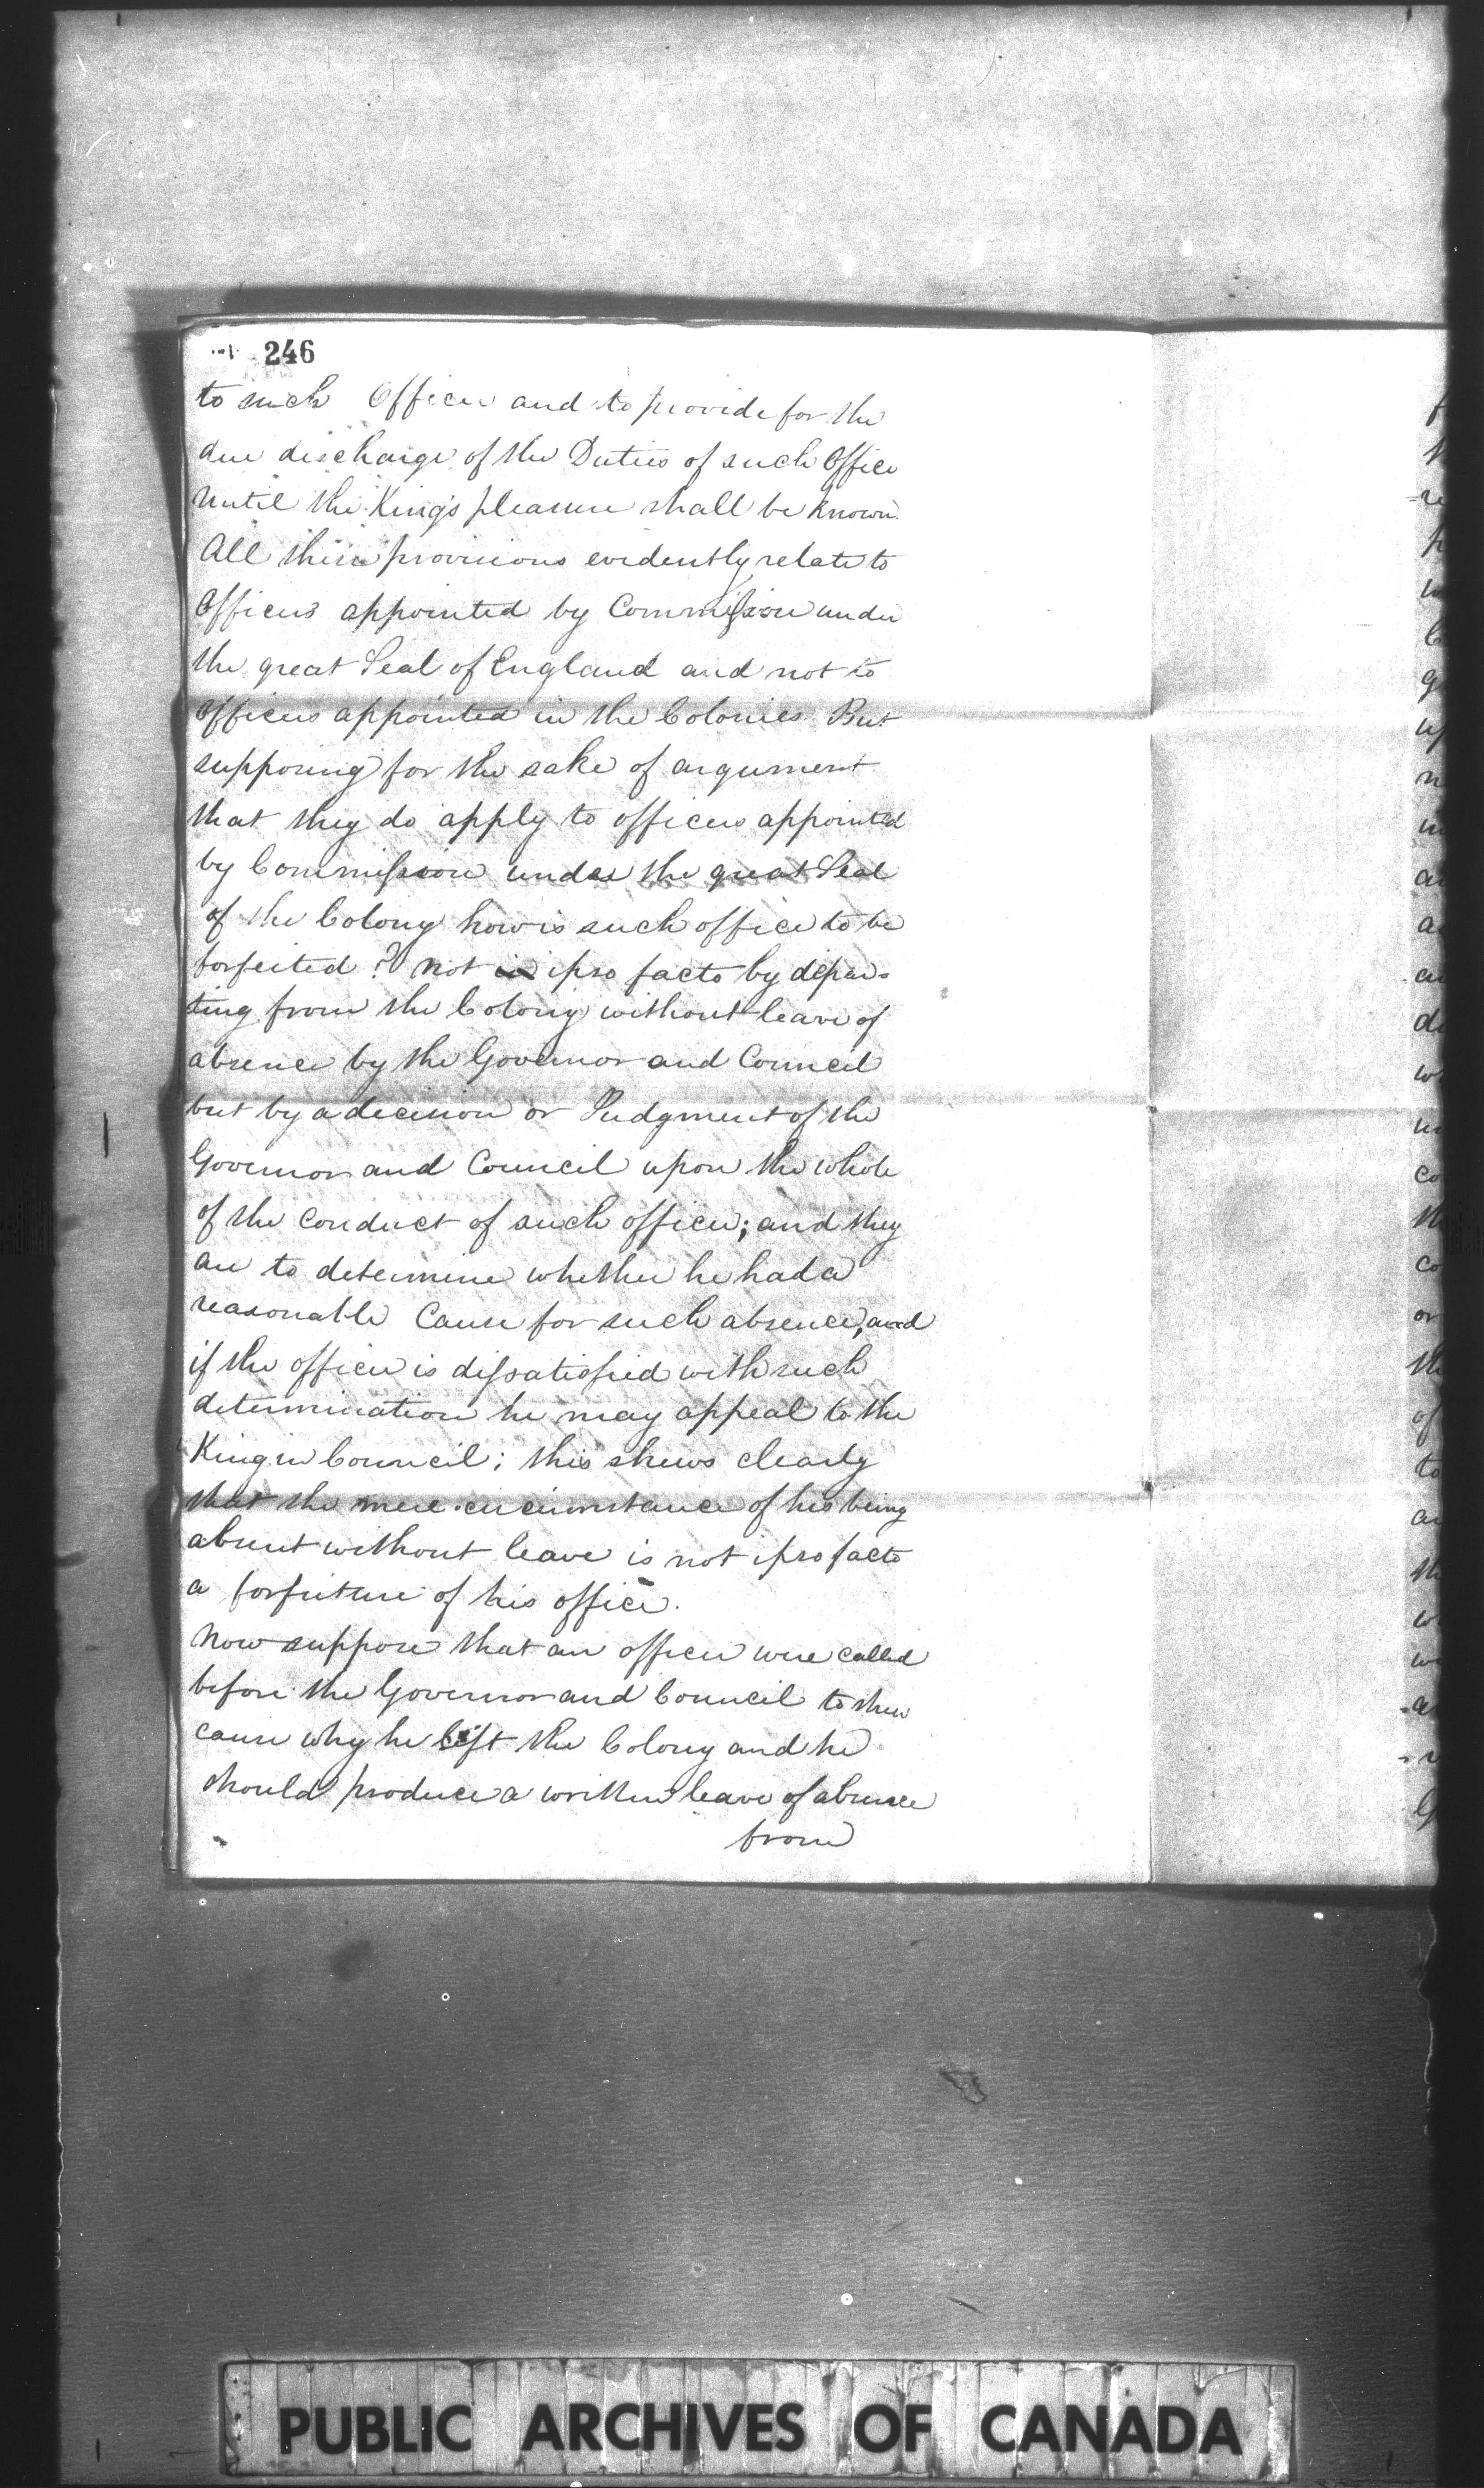 246
to such Officer and to provide for the
due discharge of the Duties of such Office
until the King's pleasure shall be known.
All these provisions evidently relate to
Officers appointed by Commission under
the great Seal of England and not to
Officers appointed in the Colonies. But
supposing for the sake of argument
that they do apply to officers appointed
by Commission under the great Seal
of the Colony how is such office to be
forfeited? not ipso facto by depar-
ting from the Colony without leave of
absence by the Governor and Council
but by a decision or Judgment of the
Governor and Council upon the whole
of the conduct of such officer; and they
are to determine whether he had a
reasonable Cause for such absence, and
if the officer is dissatisfied with such
determination he may appeal to the
King in Council; this shews clearly
that the mere circumstance of his being
absent without leave is not ipso facto
a forfeiture of his office.
Now suppose that an officer were called
before the Governor and Council to shew
cause why he left the Colony and he
should produce a written leave of absence
from
PUBLIC ARCHIVES OF CANADA